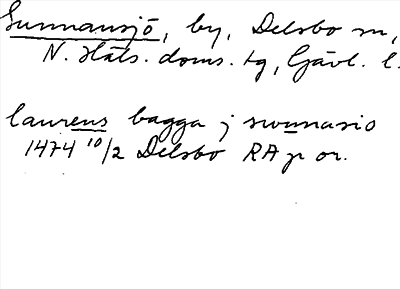 Sunnansjö, by, Delsbo sn,
N. Häls. doms. tg, Gävl. l.
laurens bagga j swnnasio
1474 10/2 Delsbo RA p or.